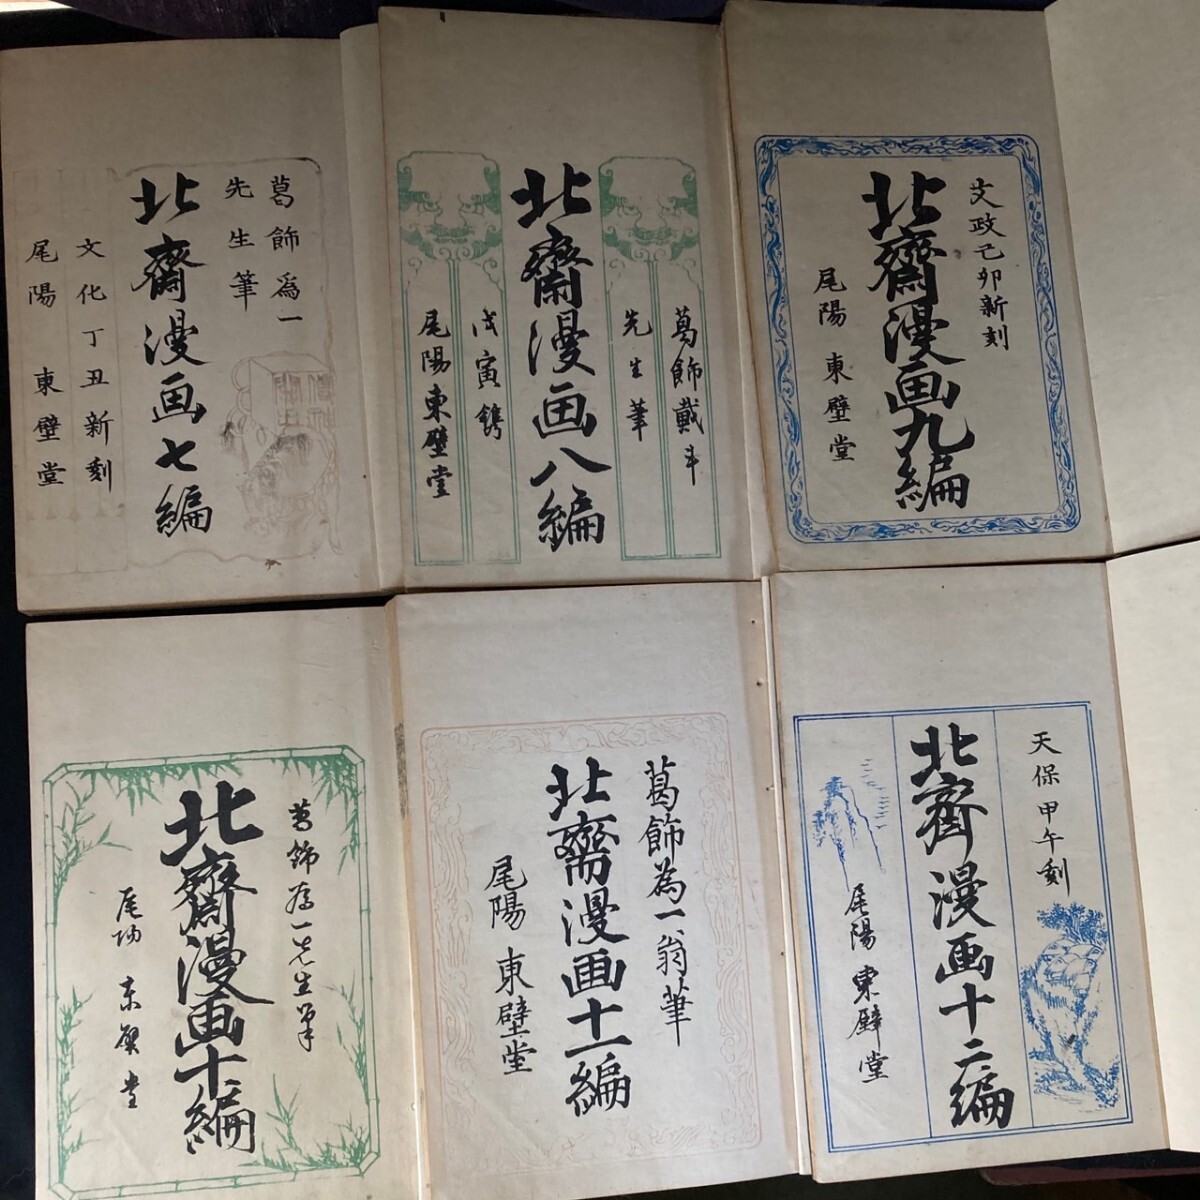 葛飾爲一
先生筆
北齋漫画七編
文化丁丑新刻
尾陽 東壁堂
葛飾戴斗
先生筆
北齋漫画八編
戊寅鐫
尾陽東壁堂
文政己卯新刻
北齋漫画九編
尾陽 東壁堂
葛飾為一先生筆
北齋漫画十編
尾陽 東壁堂
葛飾為一翁筆
北齋漫画十一編
尾陽 東壁堂
天保甲午刻
北齋漫画十二編
尾陽 東壁堂